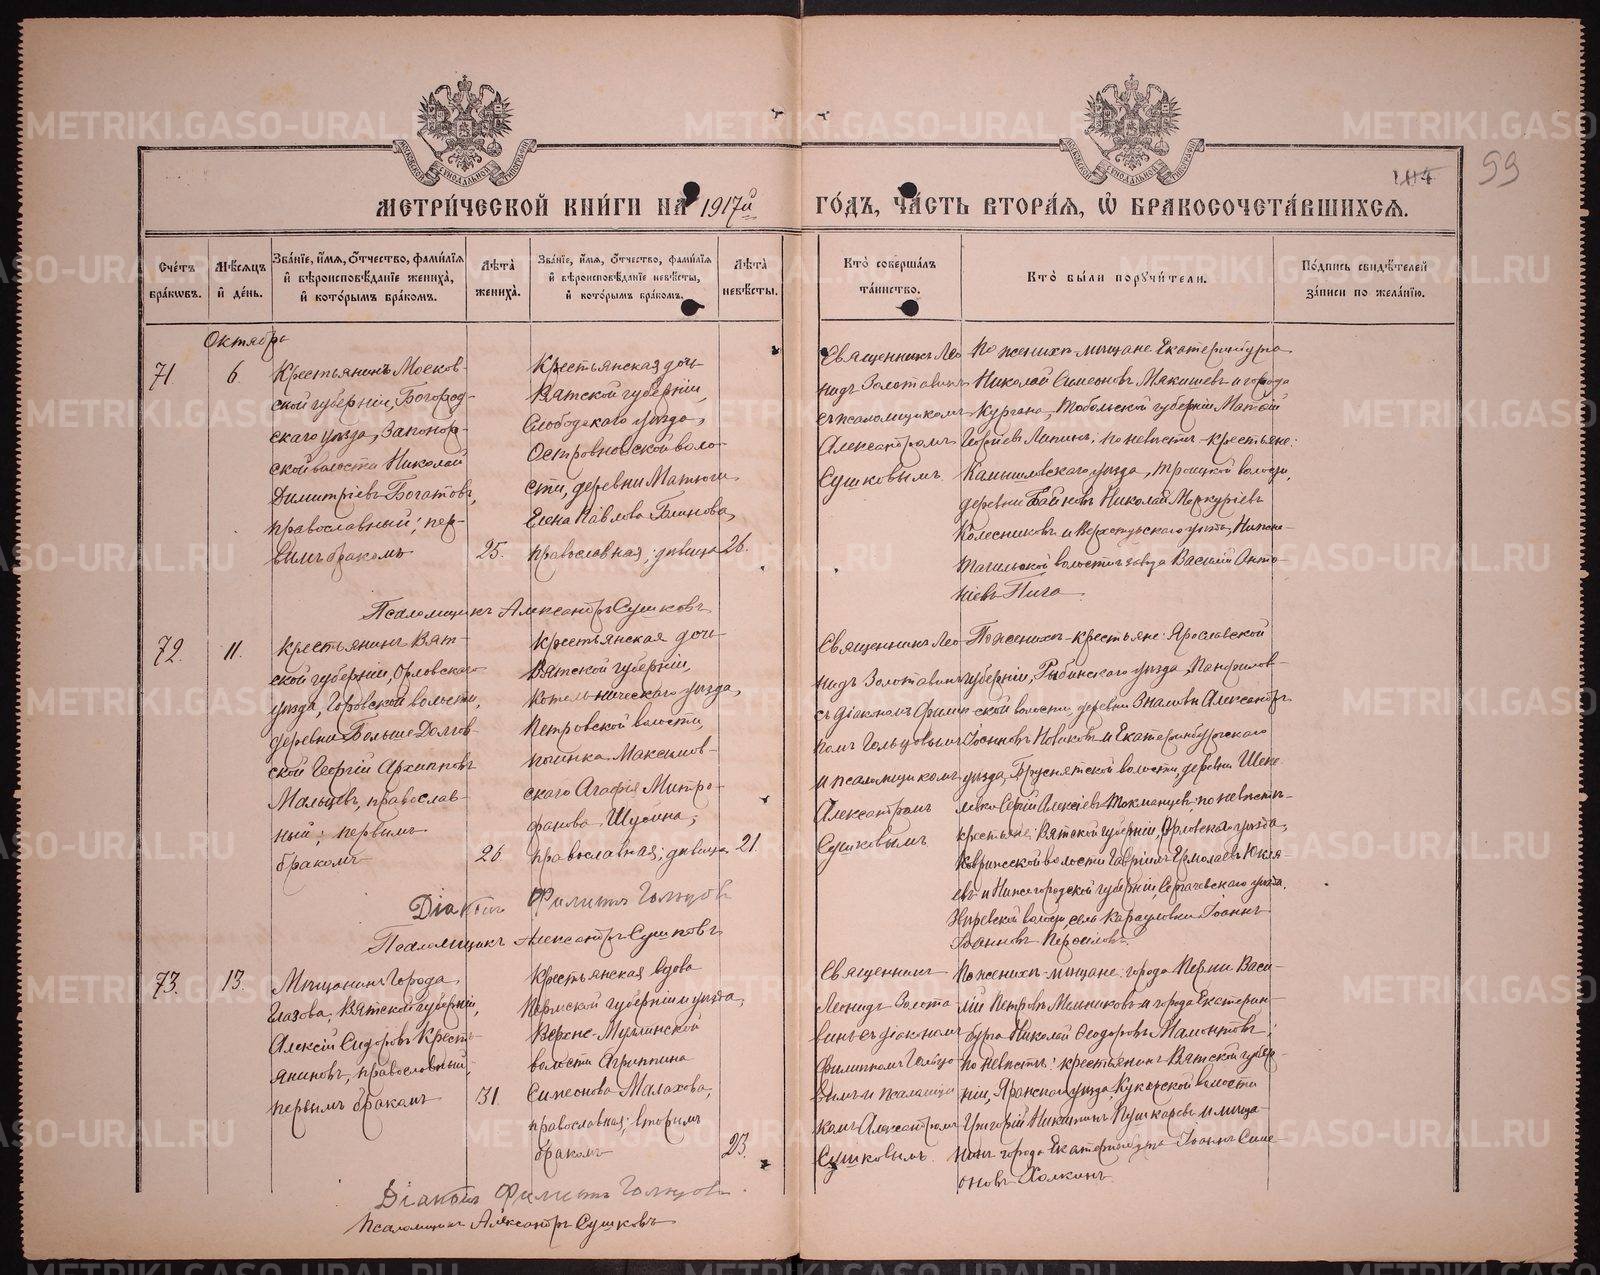 МЕТРИ́ЧЕСКОЙ КНИ́ГИ НА 1917й ГО́ДЪ, ЧА́СТЬ ВТОРА́Я, Ѡ БРАКОСОЧЕТА́ВШИХСЯ.
99
Сче́тъ бра́кѡвъ.
Мѣ́сяцъ и҆ де́нь.
Зва́нїе, и҆́мя, ѻ҆́тчество, фами́лїя
и҆ вѣроисповѣ́данїе жениха̀,
и҆ кото́рымъ бра́комъ.
Лѣта̀ жениха̀.
Зва́нїе, и҆́мя, ѻ҆́тчество, фами́лїя
и҆ вѣроисповѣ́данїе невѣ́сты,
и҆ кото́рымъ бра́комъ.
Лѣта̀ невѣ́сты.
Кто̀ соверша́лъ та́инство.
Кто̀ бы́ли порꙋчи́тели.
По́дпись свидѣ́телей за́писи по жела́нїю.
Октябрь
71.
6.
Крестьянинъ Москов-
ской губерніи, Богород-
скаго уѣзда, Запонор-
ской волости Николай
Димитріевъ Богатовъ,
православный; пер-
вымъ бракомъ
25.
Крестьянская дочь
Вятской губерніи,
Слободскаго уѣзда,
Островновской воло-
сти, деревни Матюги
Елена Павлова Блинова,
православная; дѣвица
26.
Священникъ Лео
нидъ Золотавинъ
съ псаломщикомъ
Александромъ
Сушковымъ.
По женихѣ: мѣщане Екатеринбурга
Николай Симеоновъ Мякишевъ и города
Кургана, Тобольской губерніи Матѳій
Георгіевъ Лапинъ; по невѣстѣ - крестьяне:
Камышловскаго уѣзда, Троицкой волости,
деревни Байновъ Николай Меркуріевъ
Колесниковъ и Верхотурскаго уѣзда, Нижне-
тагильской волости и завода Василій Анто-
ніевъ
Псаломщикъ Александръ Сушковъ
72.
11.
Крестьянинъ Вят-
ской губерніи, Орловскаго
уѣзда, Горовской волости,
деревни Больше-Долгов-
ской Георгій Архипповъ
Мальцевъ, православ-
ный; первымъ
бракомъ
26
Крестьянская дочь
Вятской губерніи,
Котельническаго уѣзда,
Петровской волости,
починка Максимов-
скаго Агафія Митро-
фанова
православная; дѣвица
21.
Священникъ Лео
нидъ Золотавинъ
съ діакономъ Филип
помъ Гольцовымъ
и псаломщикомъ
Александромъ
Сушковымъ.
По женихѣ - крестьяне: Ярославской
губерніи, Рыбинскаго уѣзда, Панфилов-
ской волости, деревни Александръ
Іосифовъ Новиковъ и Екатеринбургскаго
уѣзда, Бруснятской волости, деревни
Сергій Алексіевъ Токманцевъ; по невѣстѣ -
крестьяне: Вятской губерніи, Орловскаго уѣзда,
волости Гавріилъ Ермолаевъ
и Нижегородской губерніи, Сергачевскаго уѣзда,
волости, села Іоаннъ
Іоанновъ
Діаконъ Филиппъ Гольцовъ
Псаломщикъ Александръ Сушковъ
73.
13.
Мѣщанинъ города
Глазова, Вятской губерніи,
Алексій Сидоровъ Кресть-
яниновъ, православный,
первымъ бракомъ
31.
Крестьянская вдова
Пермской губерніи и уѣзда,
Верхне-Муллинской
волости Агриппина
Симеонова Малахова,
православная; вторымъ
бракомъ
23.
Священникъ
Леонидъ Золота
винъ съ діакономъ
Филиппомъ Гольцо
вымъ и псаломщи
комъ Александромъ
Сушковымъ.
По женихѣ - мѣщане: города Перми Васи-
лій Петровъ Мельниковъ и города Екатерин-
бурга Николай Ѳеодоровъ Мамонтовъ;
по невѣстѣ: крестьянинъ Вятской губер-
ніи, Яранскаго уѣзда, Кукарской волости
Григорій Никитинъ Пушкаревъ и мѣща-
нинъ города Екатеринбурга Іоаннъ Симе-
оновъ Холкинъ.
Діаконъ Филиппъ Гольцовъ.
Псаломщикъ Александръ Сушковъ
METRIKI.GASO-URAL.RU